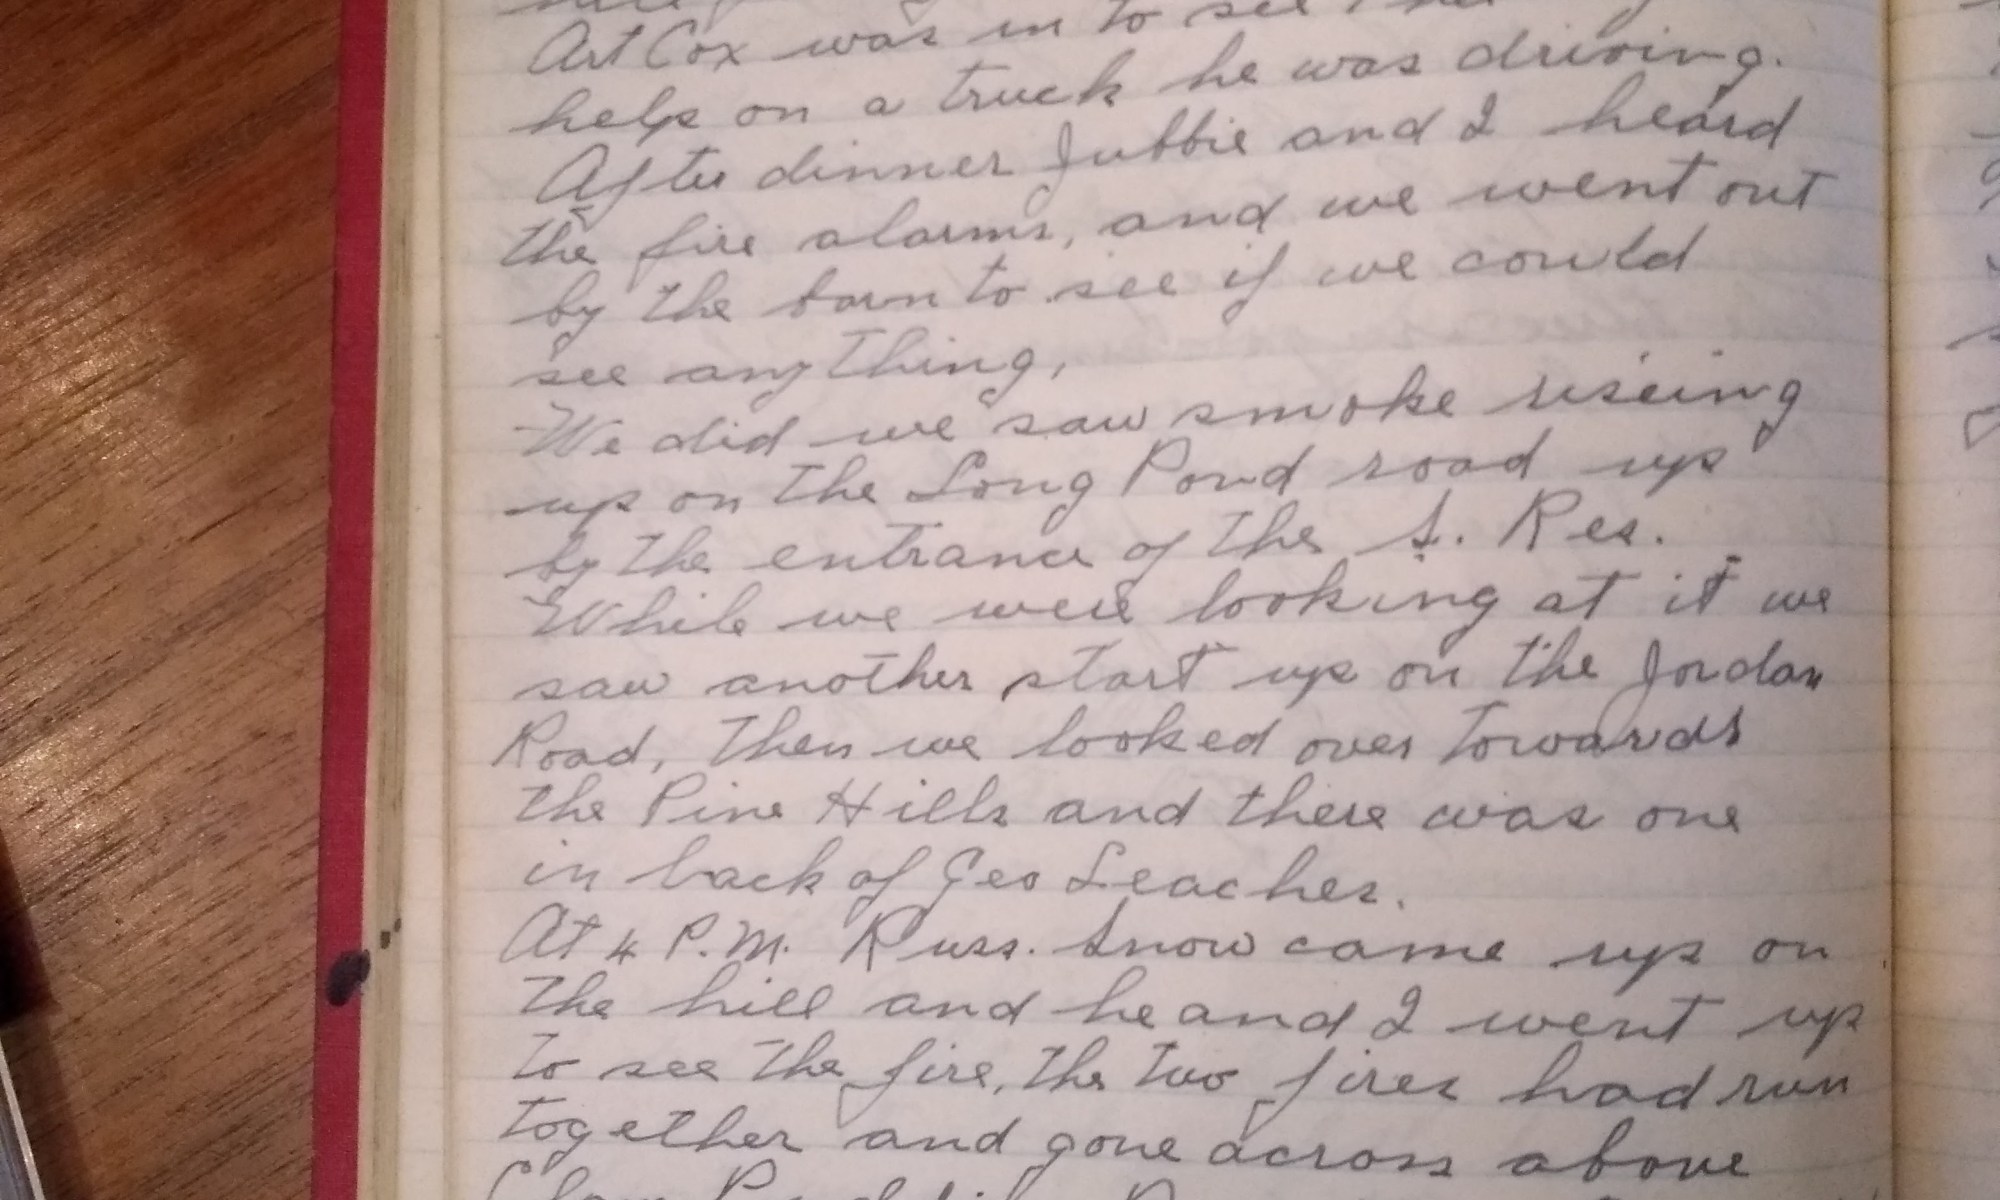 Art Cox was in to see
help on a truck he was driving.
After dinner Jubbie and I heard
the fire alarms, and we went out
by the barn to see if we could
see anything,
We did we saw smoke riseing
up on the Long Pond road up
by the entrance of the S. Res.
While we were looking at it we
saw another start up on the Jordan
Road, then we looked over towards
the Pine Hills and there was one
in back of Geo Leaches.
At 4 P.M. Russ. Snow came up on
the hill and he and I went up
to see the fire, the two fires had run
together and gone across above